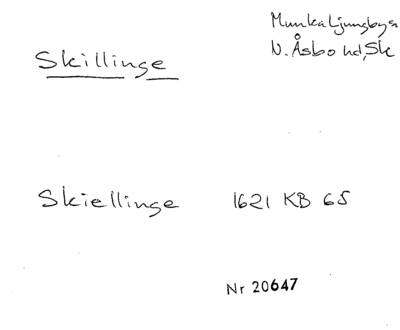 Skillinge
Munka Ljungby sn
N. Åsbo hd, Sk
Skiellinge 1621 KB 65
Nr 20647